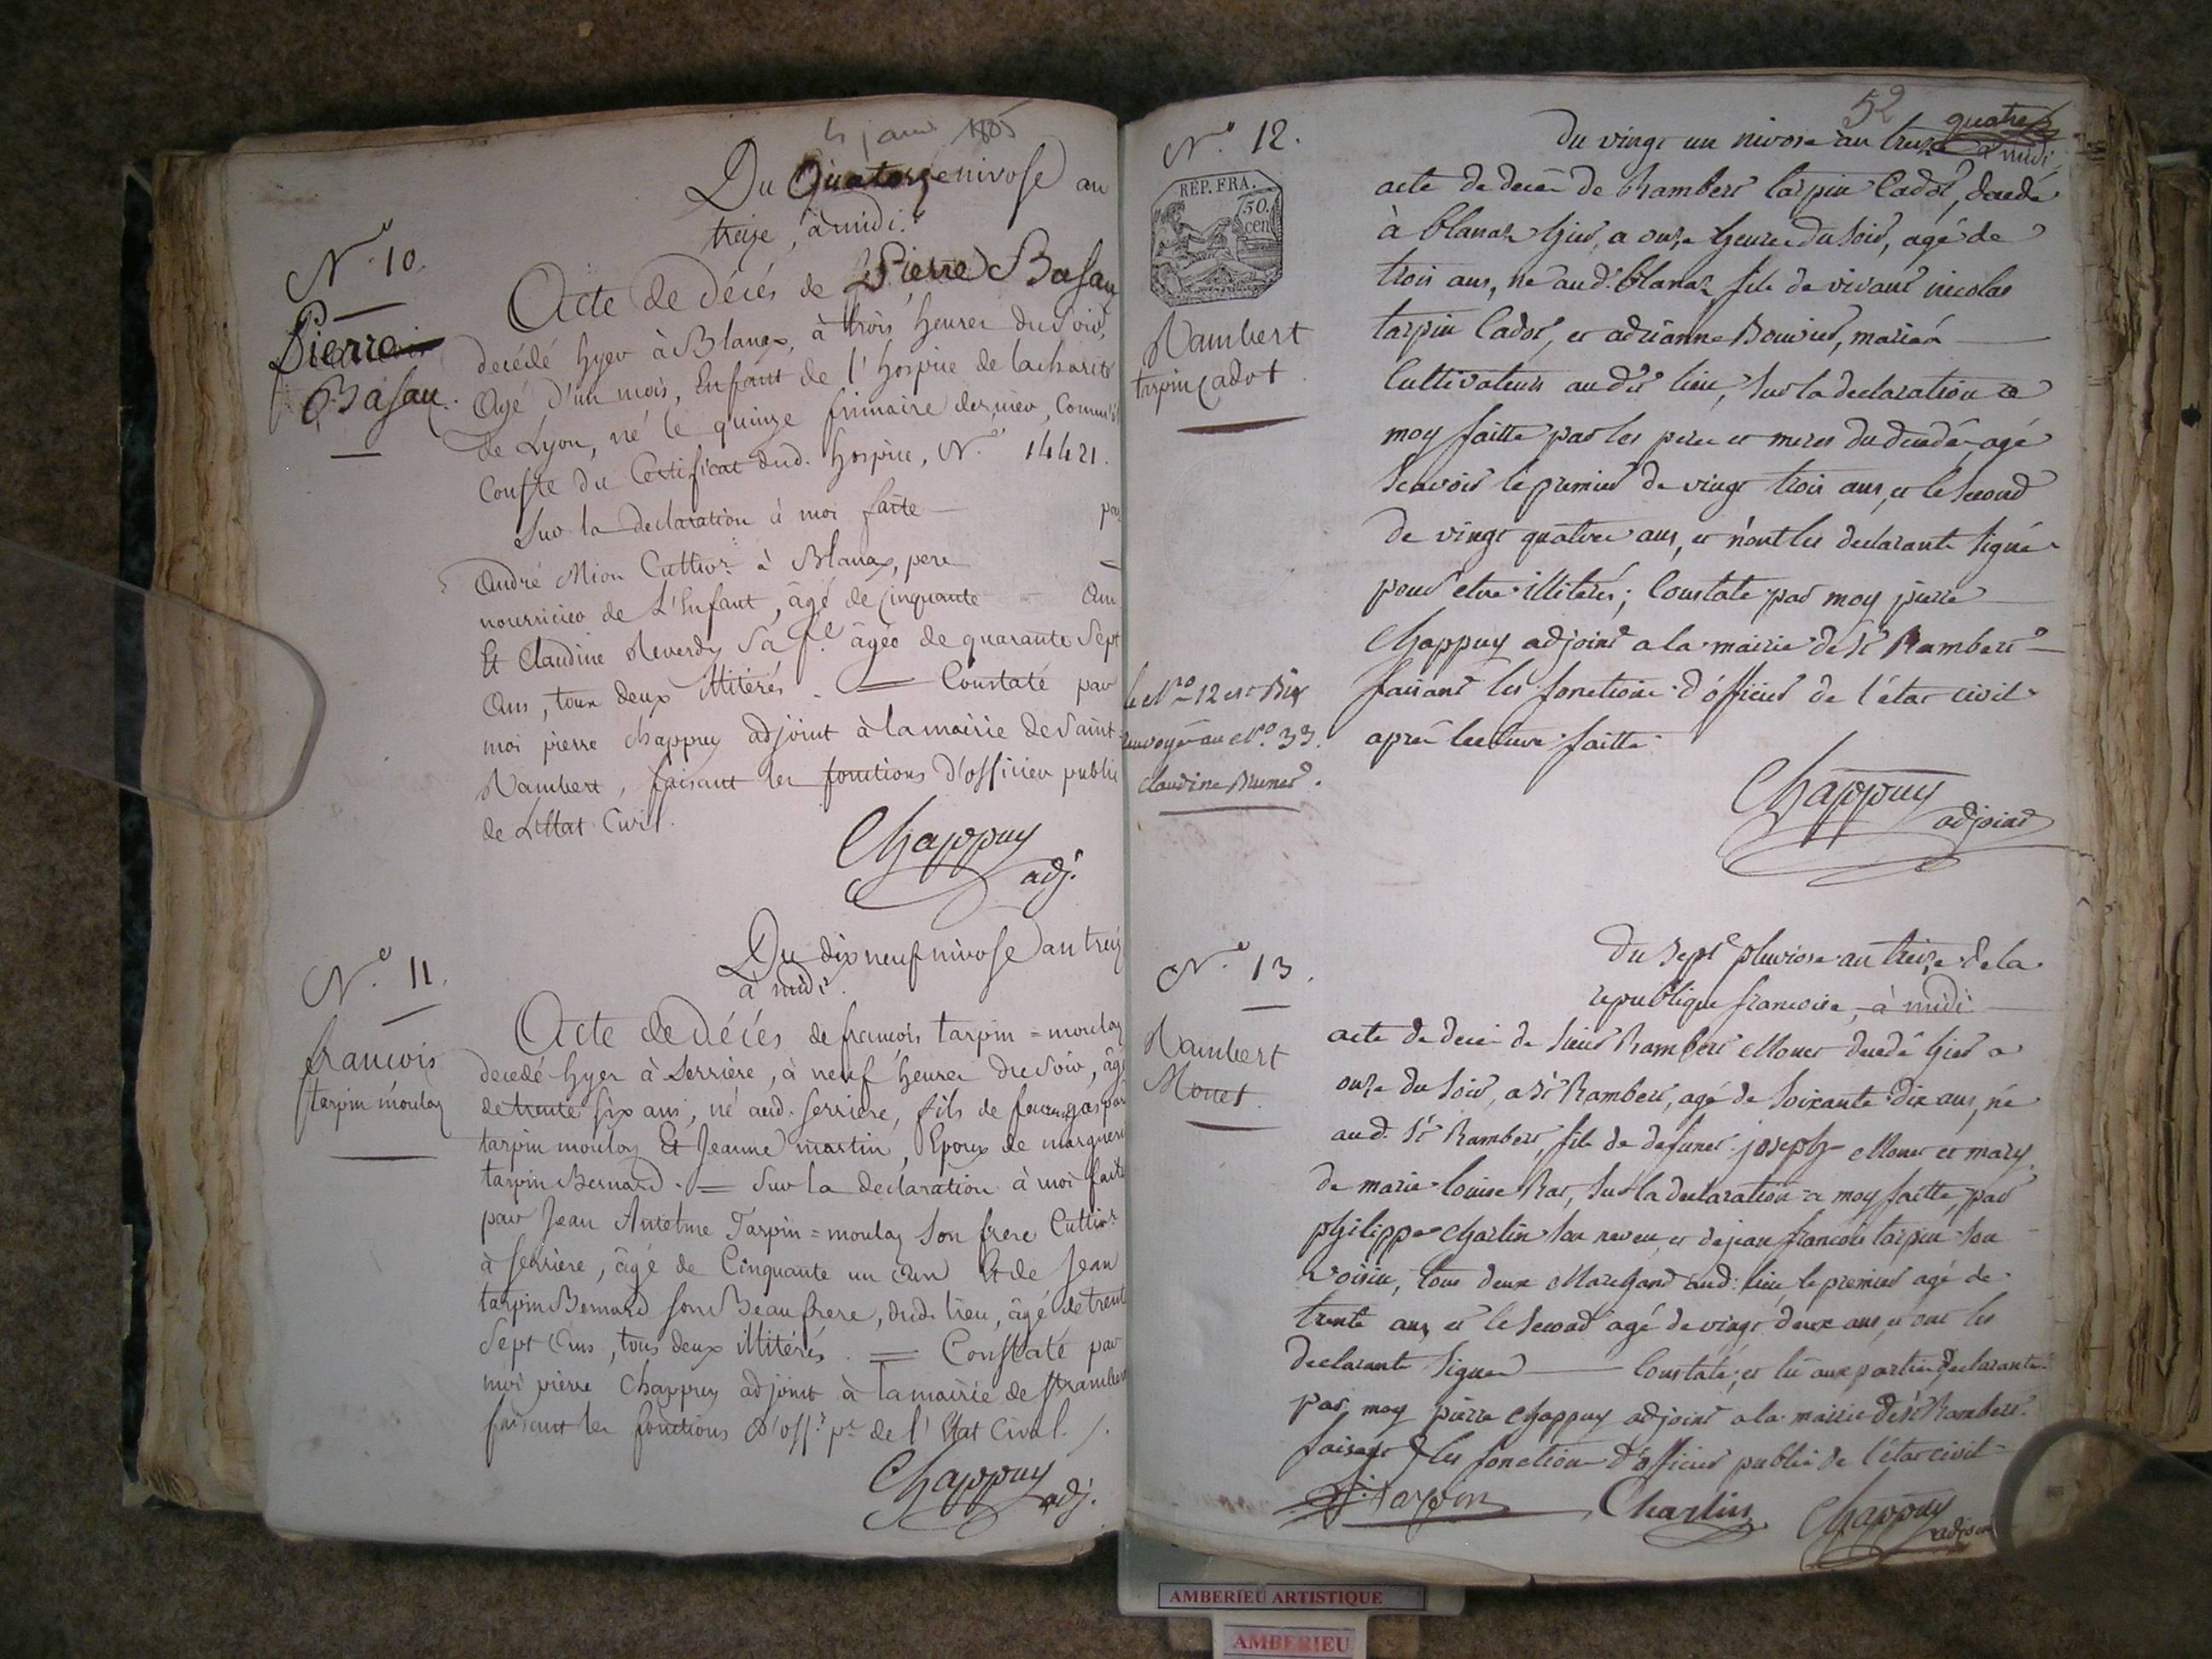 4 janv 1805
Du Quatorze nivose an
treize, à midi.
N.o 10.
Pierre
Basan.
Acte de décés de Pierre Basan
decédé hyer à Blanax, à trois heures du soir,
Agé d'un mois, Enfant de l'hospice de la charité
de Lyon, né le quinze frimaire dernier, Comme il
Conste du Certificat dud. hospice, N.o 14421.
Sur la declaration à moi faite par
André Mion Cultivr. à Blanax, pere
nourricier de L'Enfant, âgé de Cinquante = Ans
Et Claudine Reverdy Sa fe. âgée de quarante Sept
Ans, tous deux illitérés. = Constaté par
moi pierre Chappuy adjoint à la mairie de Saint-
Rambert, faisant les fonctions d'officier public
de L'Etat Civil.
Chappuy
adj.
Du dix neuf nivose an treize
à midi.
N.o 11.
francois
tarpin moulaz
Acte de décés de francois tarpin = moulaz
decedé hyer à Serriere, à neuf heures du Soir, âgé
de trente Six ans, né aud. Serriere, fils de gaspard
tarpin moulaz Et Jeanne martin, Epoux de marguerite
tarpin Bernard. = Sur la declaration à moi faite
par Jean Anselme Tarpin = moulaz Son frere Cultivr.
à Serriere, âgé de Cinquante un ans Et de Jean
tarpin Bernard son Beaufrere, dud. lieu, âgé de trente
Sept Ans, tous deux illitérés. = Constaté par
moi pierre Chappuy adjoint à la mairie de St rambert
faisant les fonctions d'offr. pc. de l'Etat Civil.
Chappuy
adj.
52
N.o 12.
REP. FRA.
50.
cen
Rambert
tarpin Cadot
le N.o 12 est Bis
renvoyé au N.o 33.
Claudine Brunet.
du vingt un nivose an treize quatre
a midi
acte de decé de Rambert tarpin Cadot, decedé
à blanaz hier, a onze heures du soir, agé de
trois ans, né aud. blanaz fils de vivant nicolas
tarpin Cadot, et adrianne Bouvier, mariés
Cultivateurs au dit lieu, Sur la declaration a
moy faitte par les pere et meres du decedé, agé
Scavoir le premier de vingt trois ans, et le second
de vingt quatre ans, et n'ont les declarants signé
pour etre illiterés; Constate par moy pierre
Chappuy adjoint a la mairie de St Rambert
faisant les fonctions d'officier de l'état civil
aprés lecture faitte.
Chappuy
adjoint
du sept pluviose an treize de la
republique francoise, à midi
N.o 13.
Rambert
Monet.
acte de decé de Sieur Rambert Monet decedé hier a
onze du soir, a St Rambert, agé de Soixante dix ans, né
aud. St Rambert, fils de defunct joseph Monet et mary
de marie Louise Rat, Sur la declaration a moy faitte, par
philippe Charlin son neveu, et de jean francois tarpin son
voisin, tous deux Marchand aud. lieu, le premier agé de
trente ans, et le second agé de vingt deux ans, et ont les
declarants Signer Constaté, et lu aux parties declarantes
par moy pierre Chappuy adjoint a la mairie de St Rambert
faisant les fonctions d'officier public de l'état civil
tarpin Charlin Chappuy
adjoint
AMBERIEU ARTISTIQUE
AMBERIEU